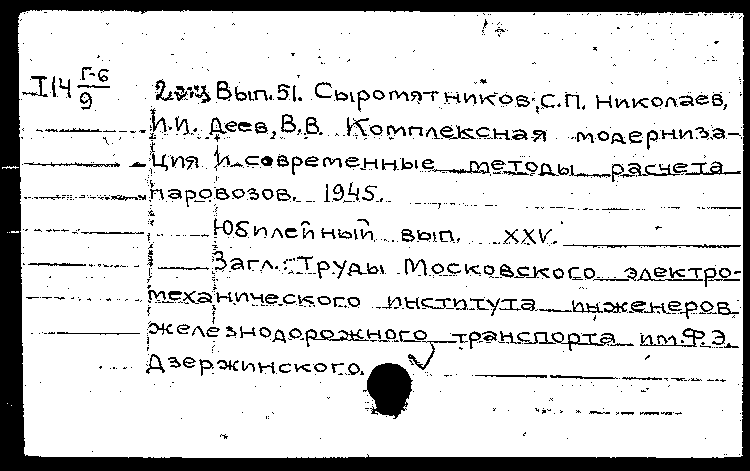 I 14 Г-6/9
2 экз Вып. 51. Сыромятников, С.П. Николаев,
И.И. Деев, В.В. Комплексная модерниза-
ция и современные методы расчета
паровозов. 1945.
Юбилейный вып. XXV.
Загл.: Труды Московского электро-
механического института инженеров
железнодорожного транспорта им. Ф.Э.
Дзержинского.